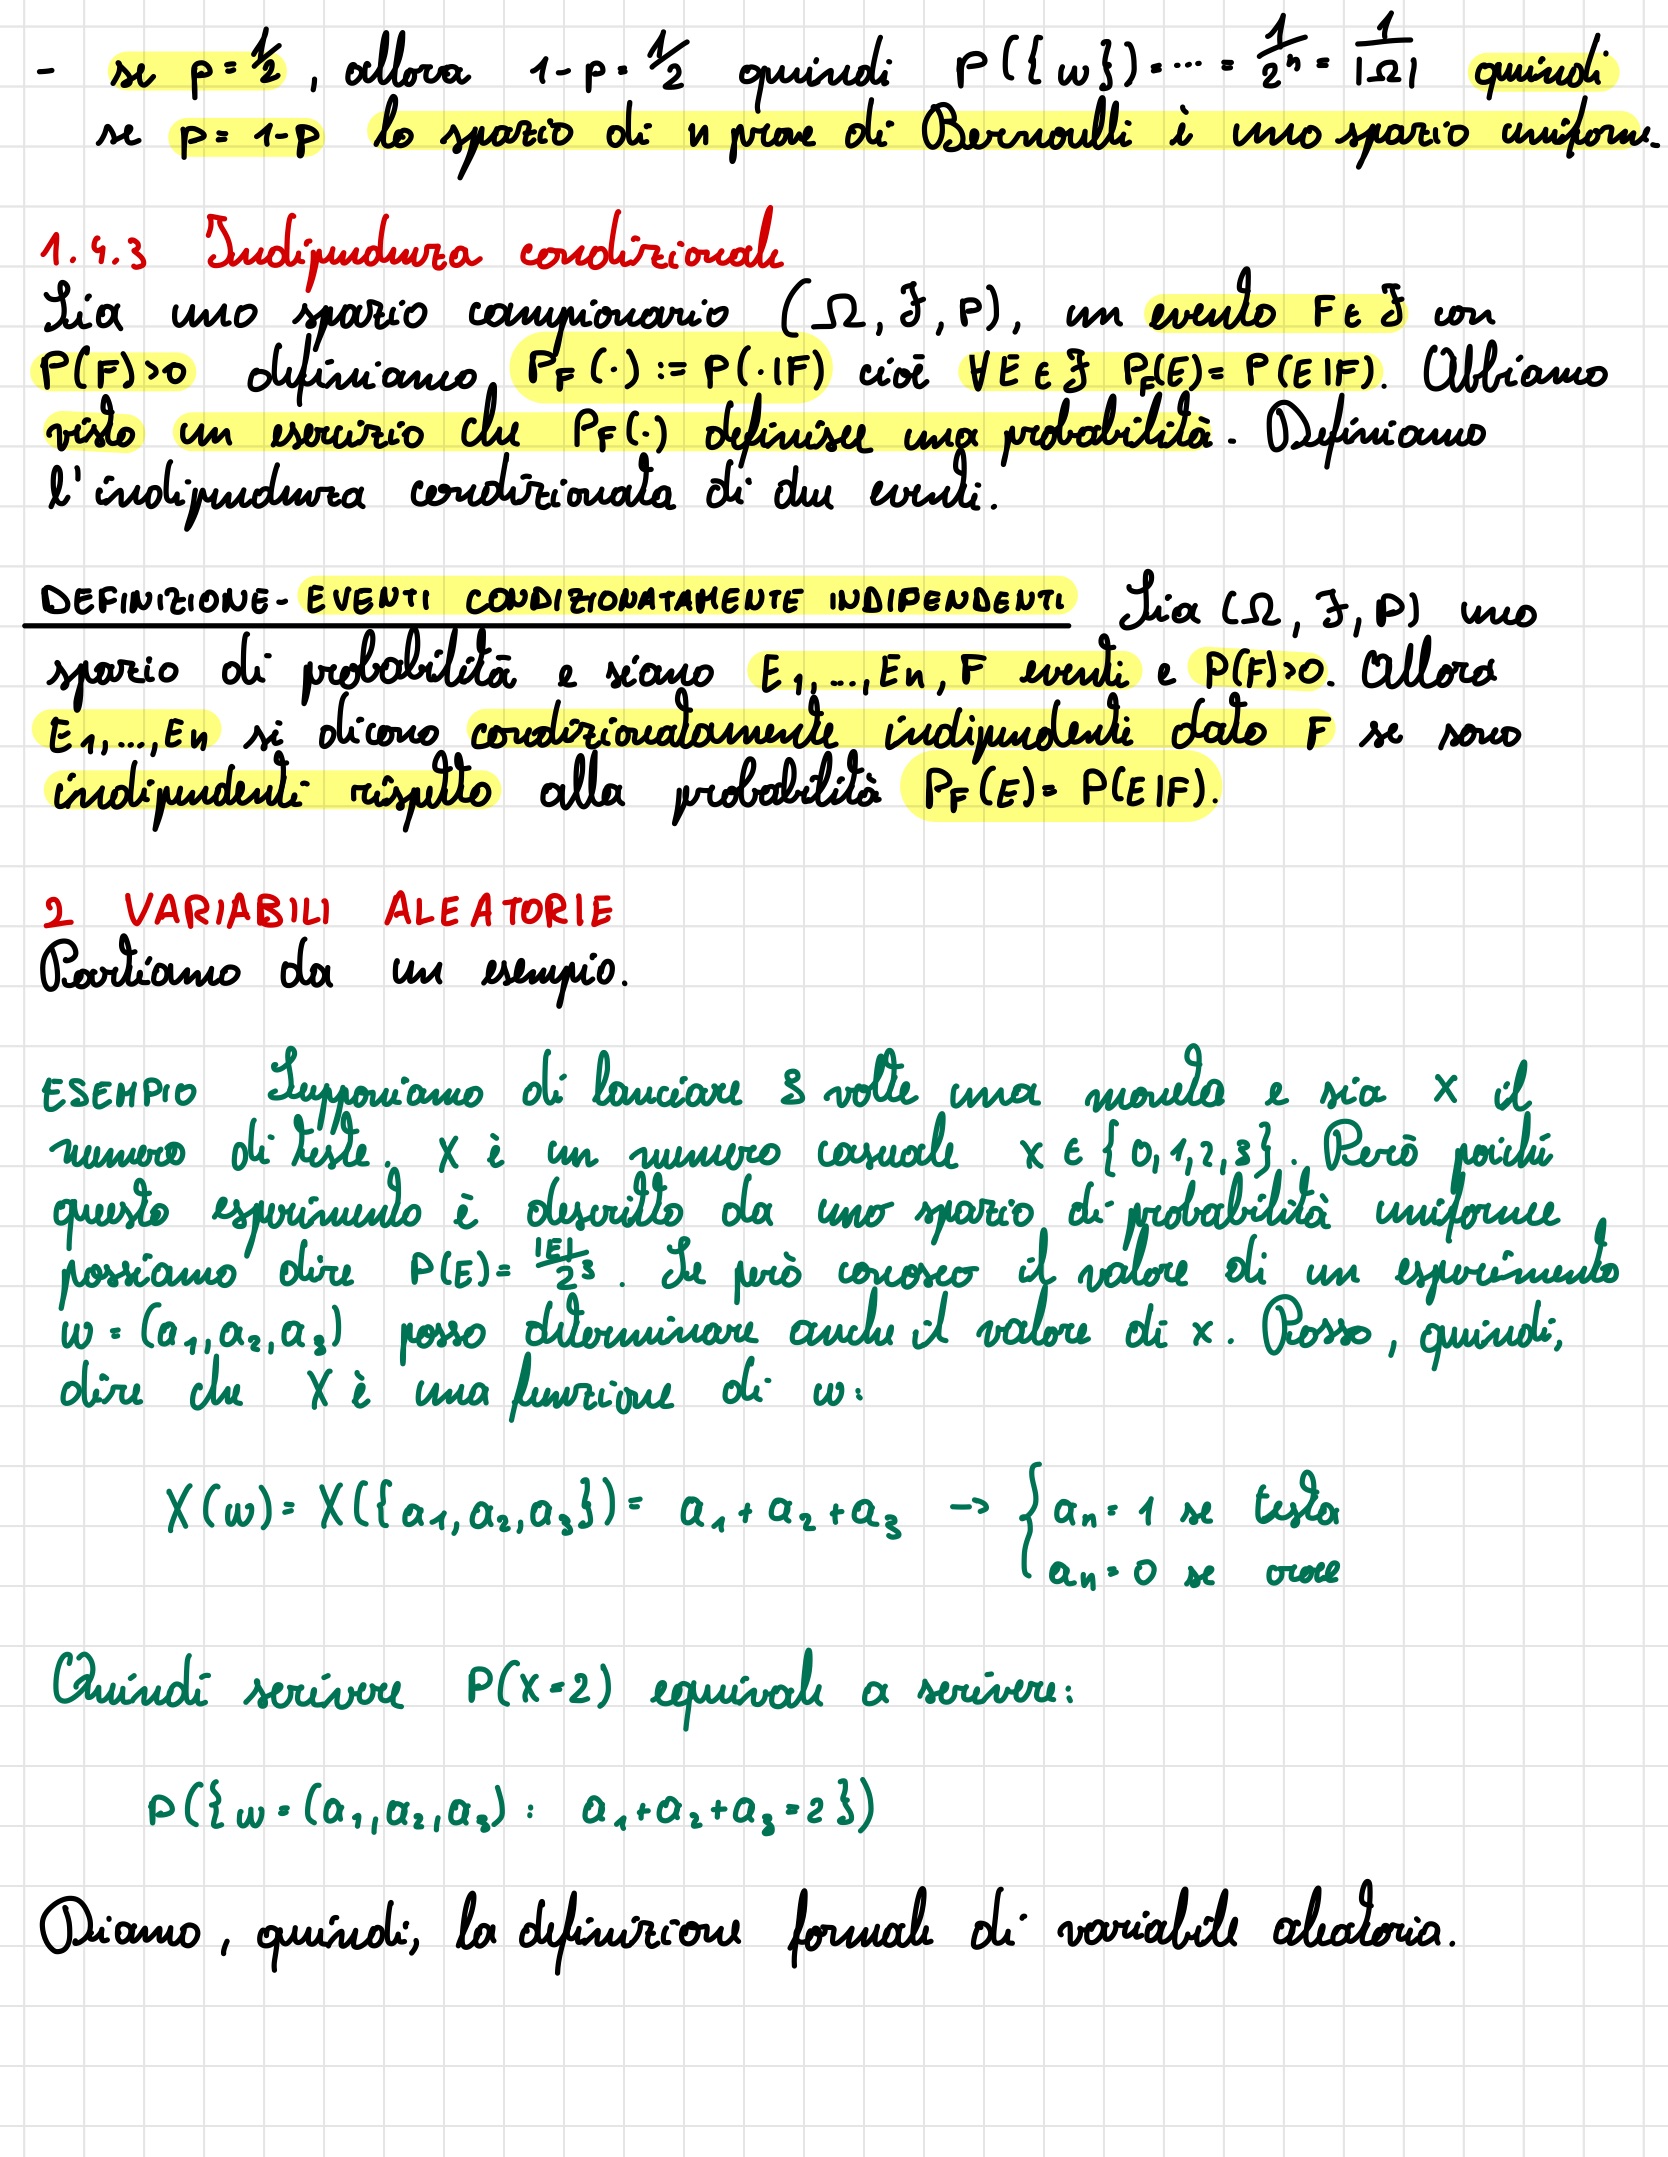 - se p = 1/2, allora 1-p = 1/2 quindi P({w}) = ... = 1/2ⁿ = 1/|Ω| quindi
se p = 1-p lo spazio di n prove di Bernoulli è uno spazio uniforme.
1.4.3 Indipendenza condizionale
Sia uno spazio campionario (Ω, F, P), un evento F ∈ F con
P(F)>0 definiamo P_F(·) := P(·|F) cioè ∀E ∈ F P_F(E) = P(E|F). Abbiamo
visto un esercizio che P_F(·) definisce una probabilità. Definiamo
l'indipendenza condizionata di due eventi.
DEFINIZIONE - EVENTI CONDIZIONATAMENTE INDIPENDENTI Sia (Ω, F, P) uno
spazio di probabilità e siano E₁, ..., En, F eventi e P(F)>0. Allora
E₁, ..., En si dicono condizionatamente indipendenti dato F se sono
indipendenti rispetto alla probabilità P_F(E) = P(E|F).
2 VARIABILI ALEATORIE
Partiamo da un esempio.
ESEMPIO Supponiamo di lanciare 3 volte una moneta e sia X il
numero di teste. X è un numero casuale x ∈ {0,1,2,3}. Però poiché
questo esperimento è descritto da uno spazio di probabilità uniforme
possiamo dire P(E) = |E|/2³. Se però conosco il valore di un esperimento
w = (a₁, a₂, a₃) posso determinare anche il valore di x. Posso, quindi,
dire che X è una funzione di w:
X(w) = X({a₁, a₂, a₃}) = a₁ + a₂ + a₃ -> { an = 1 se testa
an = 0 se croce
Quindi scrivere P(X=2) equivale a scrivere:
P({w = (a₁, a₂, a₃) : a₁+a₂+a₃ = 2})
Diamo, quindi, la definizione formale di variabile aleatoria.